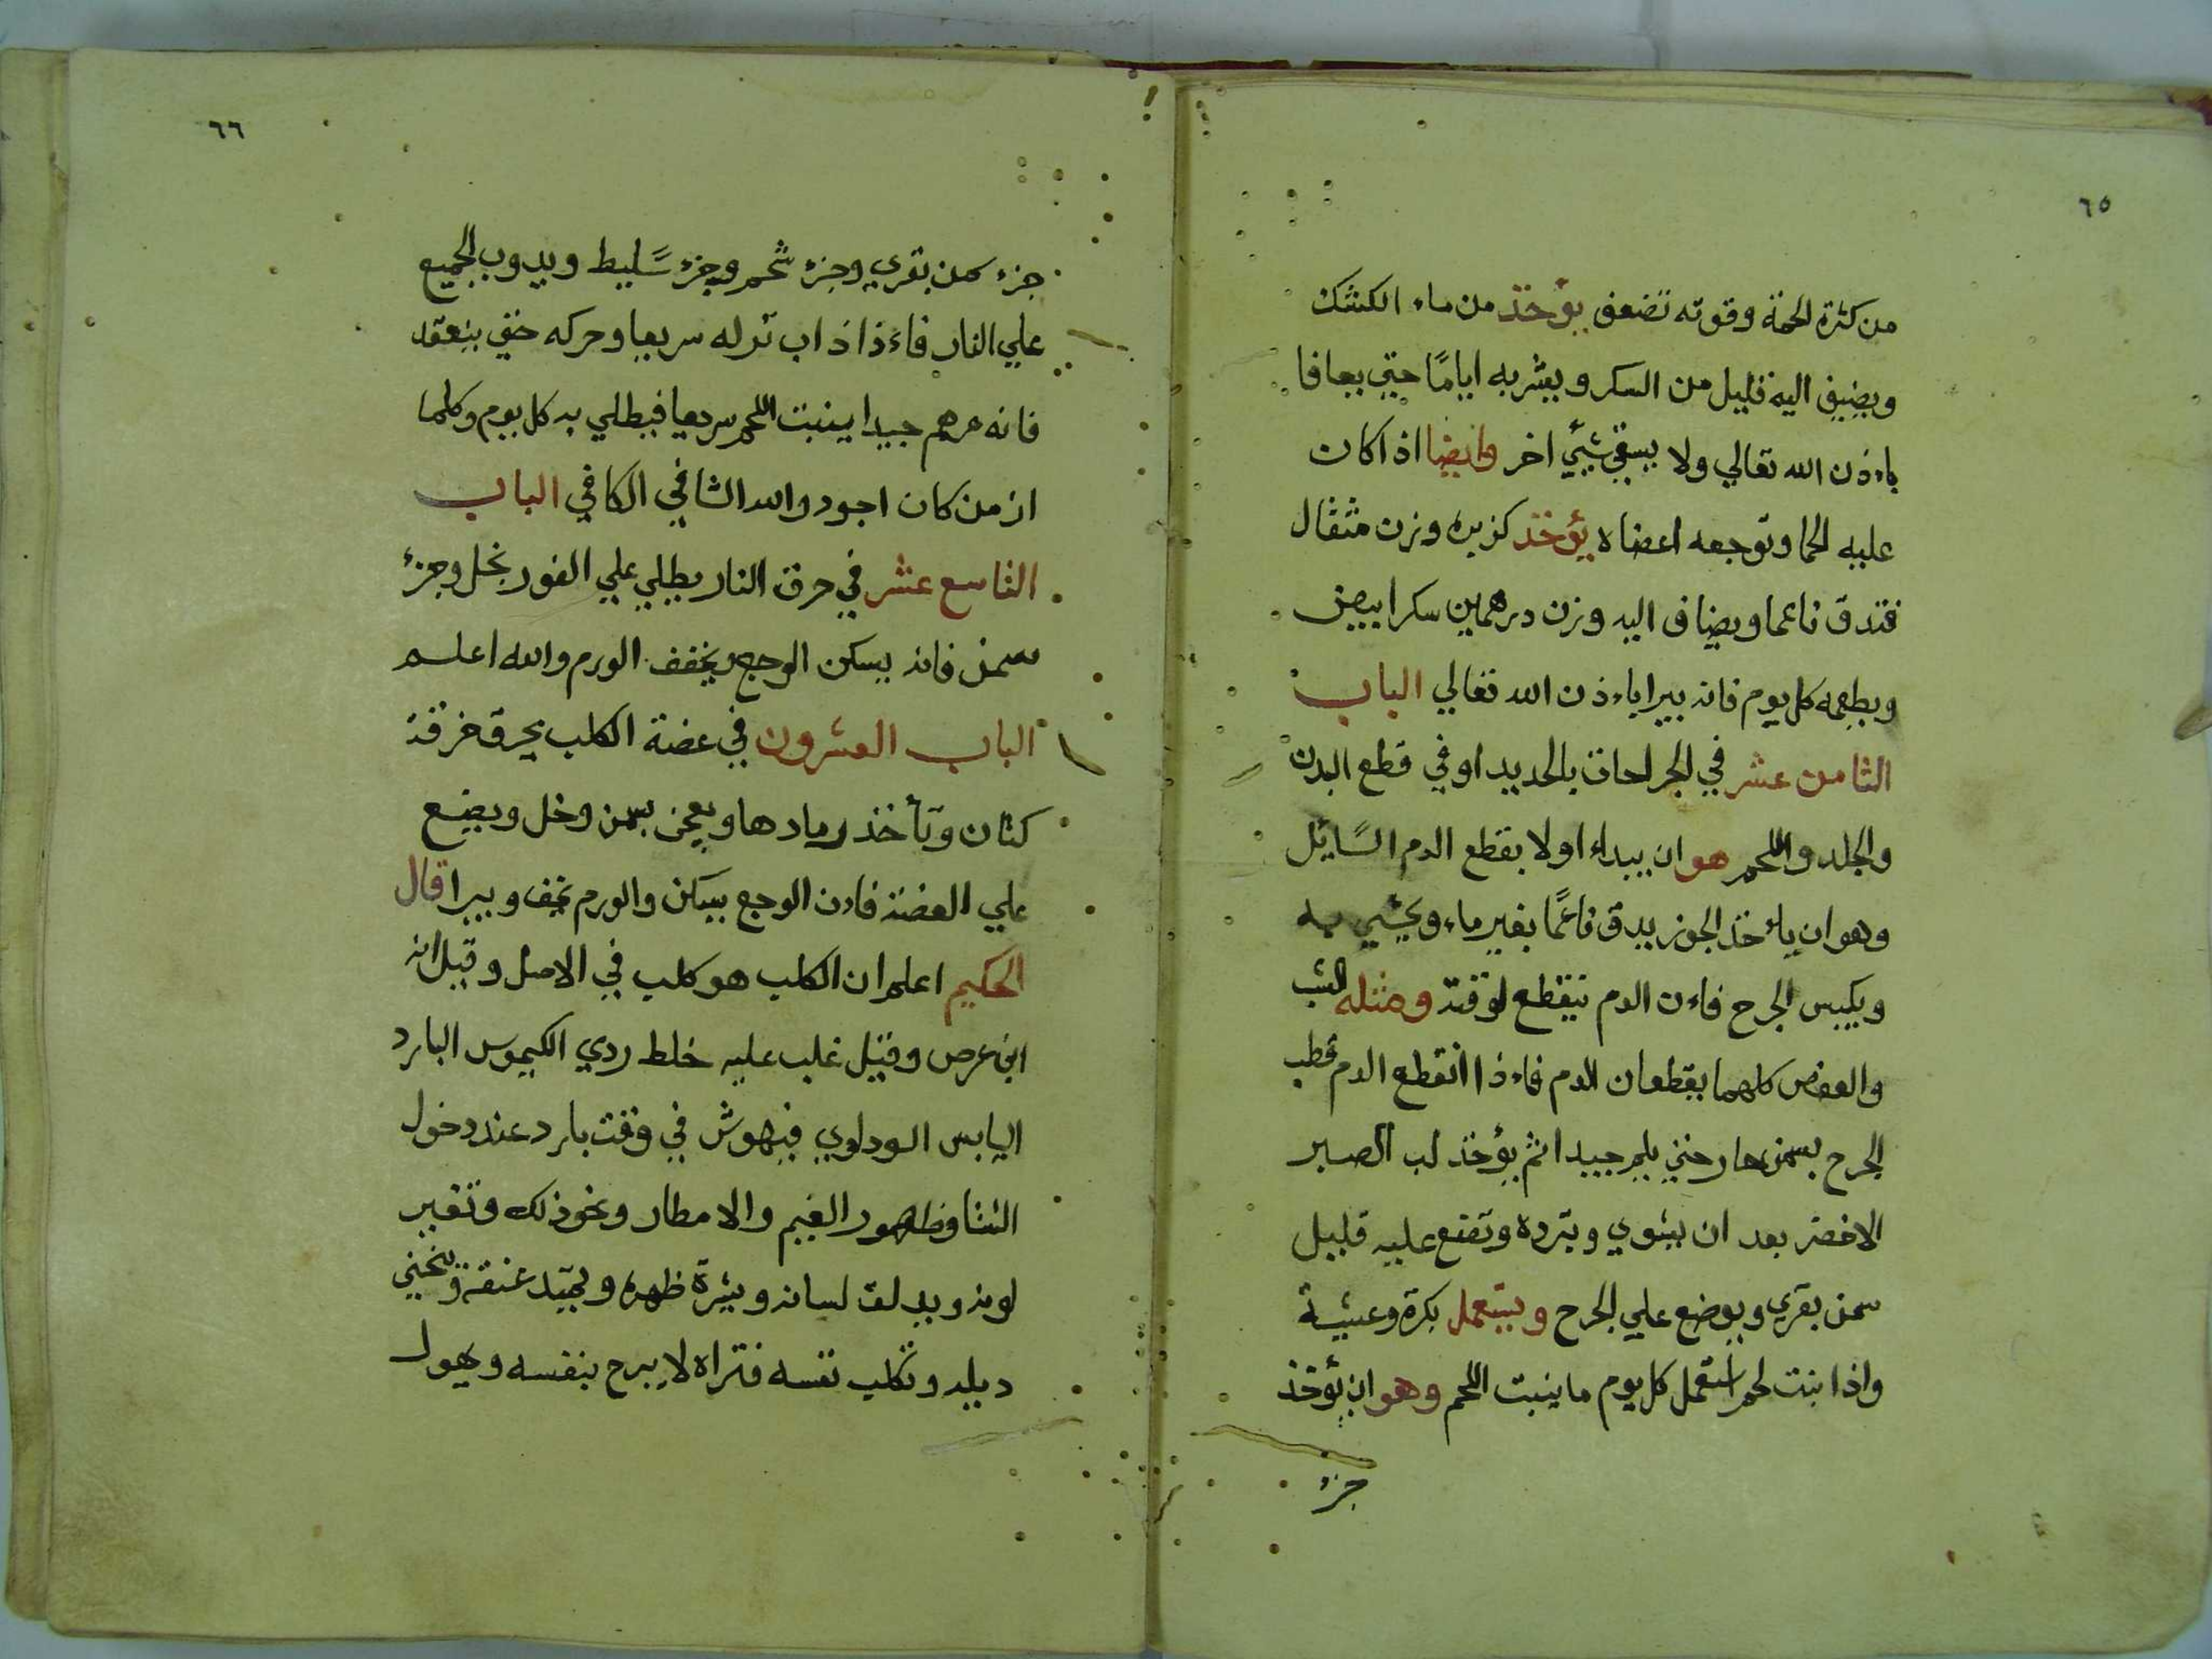 ٦٥
من كثرة الحمة وقوته تضعف يؤخذ من ماء الكشك
ويضيف اليه قليل من السكر ويشربه اياما حتي يعافا
باءذن الله تعالي ولا يسقي شيئ اخر وايضا اذا كان
عليه الحما وتوجعه اعضاه يؤخذ كزبره وزن مثقال
فتدق ناعما ويضاف اليه وزن درهمين سكر ابيض
ويطعمه كل يوم فانه يبرا باءذن الله تعالي الباب
الثامن عشر في الجراحات بالحديد او في قطع البدن
والجلد واللحم هو ان يبداء اولا بقطع الدم السايل
وهو ان ياءخذ الجوز يدق ناعما بغير ماء ويحشي به
ويكبس الجرح فاءن الدم ينقطع لوقته ومثله الشب
والعفص كلهما يقطعان الدم فاءذا انقطع الدم قطب
الجرح بسمن حار حتي يلم جيدا ثم يؤخذ لب الصبر
الاخضر بعد ان يشوي وتبرده وتضع عليه قليل
سمن بقري ويوضع علي الجرح ويستعمل بكرة وعشية
واذا بنت لحم استعمل كل يوم ما ينبت اللحم وهو ان يؤخذ
جزء
٦٦
جزء سمن بقري وجزء شحم وجزء سليط ويدوب الجميع
علي النار فاءذا ذاب نزله سريعا وحركه حتي ينعقد
فانه مرهم جيدا ينبت اللحم سريعا فيطلي به كل يوم وكلما
ازمن كان اجود والله الشافي الكافي الباب
التاسع عشر في حرق النار يطلي علي الفور بخل وجزء
سمن فانه يسكن الوجع ويخفف الورم والله اعلم
الباب العشرون في عضة الكلب يحرق خرقة
كتان وتأخذ رمادها ويعجن بسمن وخل ويضع
علي العضة فاءن الوجع يسكن والورم يخف ويبرا قال
الحكيم اعلم ان الكلب هو كلب في الاصل وقيل انه
ابن عرص وقيل غلب عليه خلط ردي الكيموس البارد
اليابس السوداوي فيهوش في وقت بارد عند دخول
الشتا وظهور الغيم والامطار ونحو ذلك وتغير
لونه ويدلق لسانه ويشرة ظهره ويميد عنقه وينحني
ديله وتكلب نفسه فتراه لا يبرح بنفسه ويهول